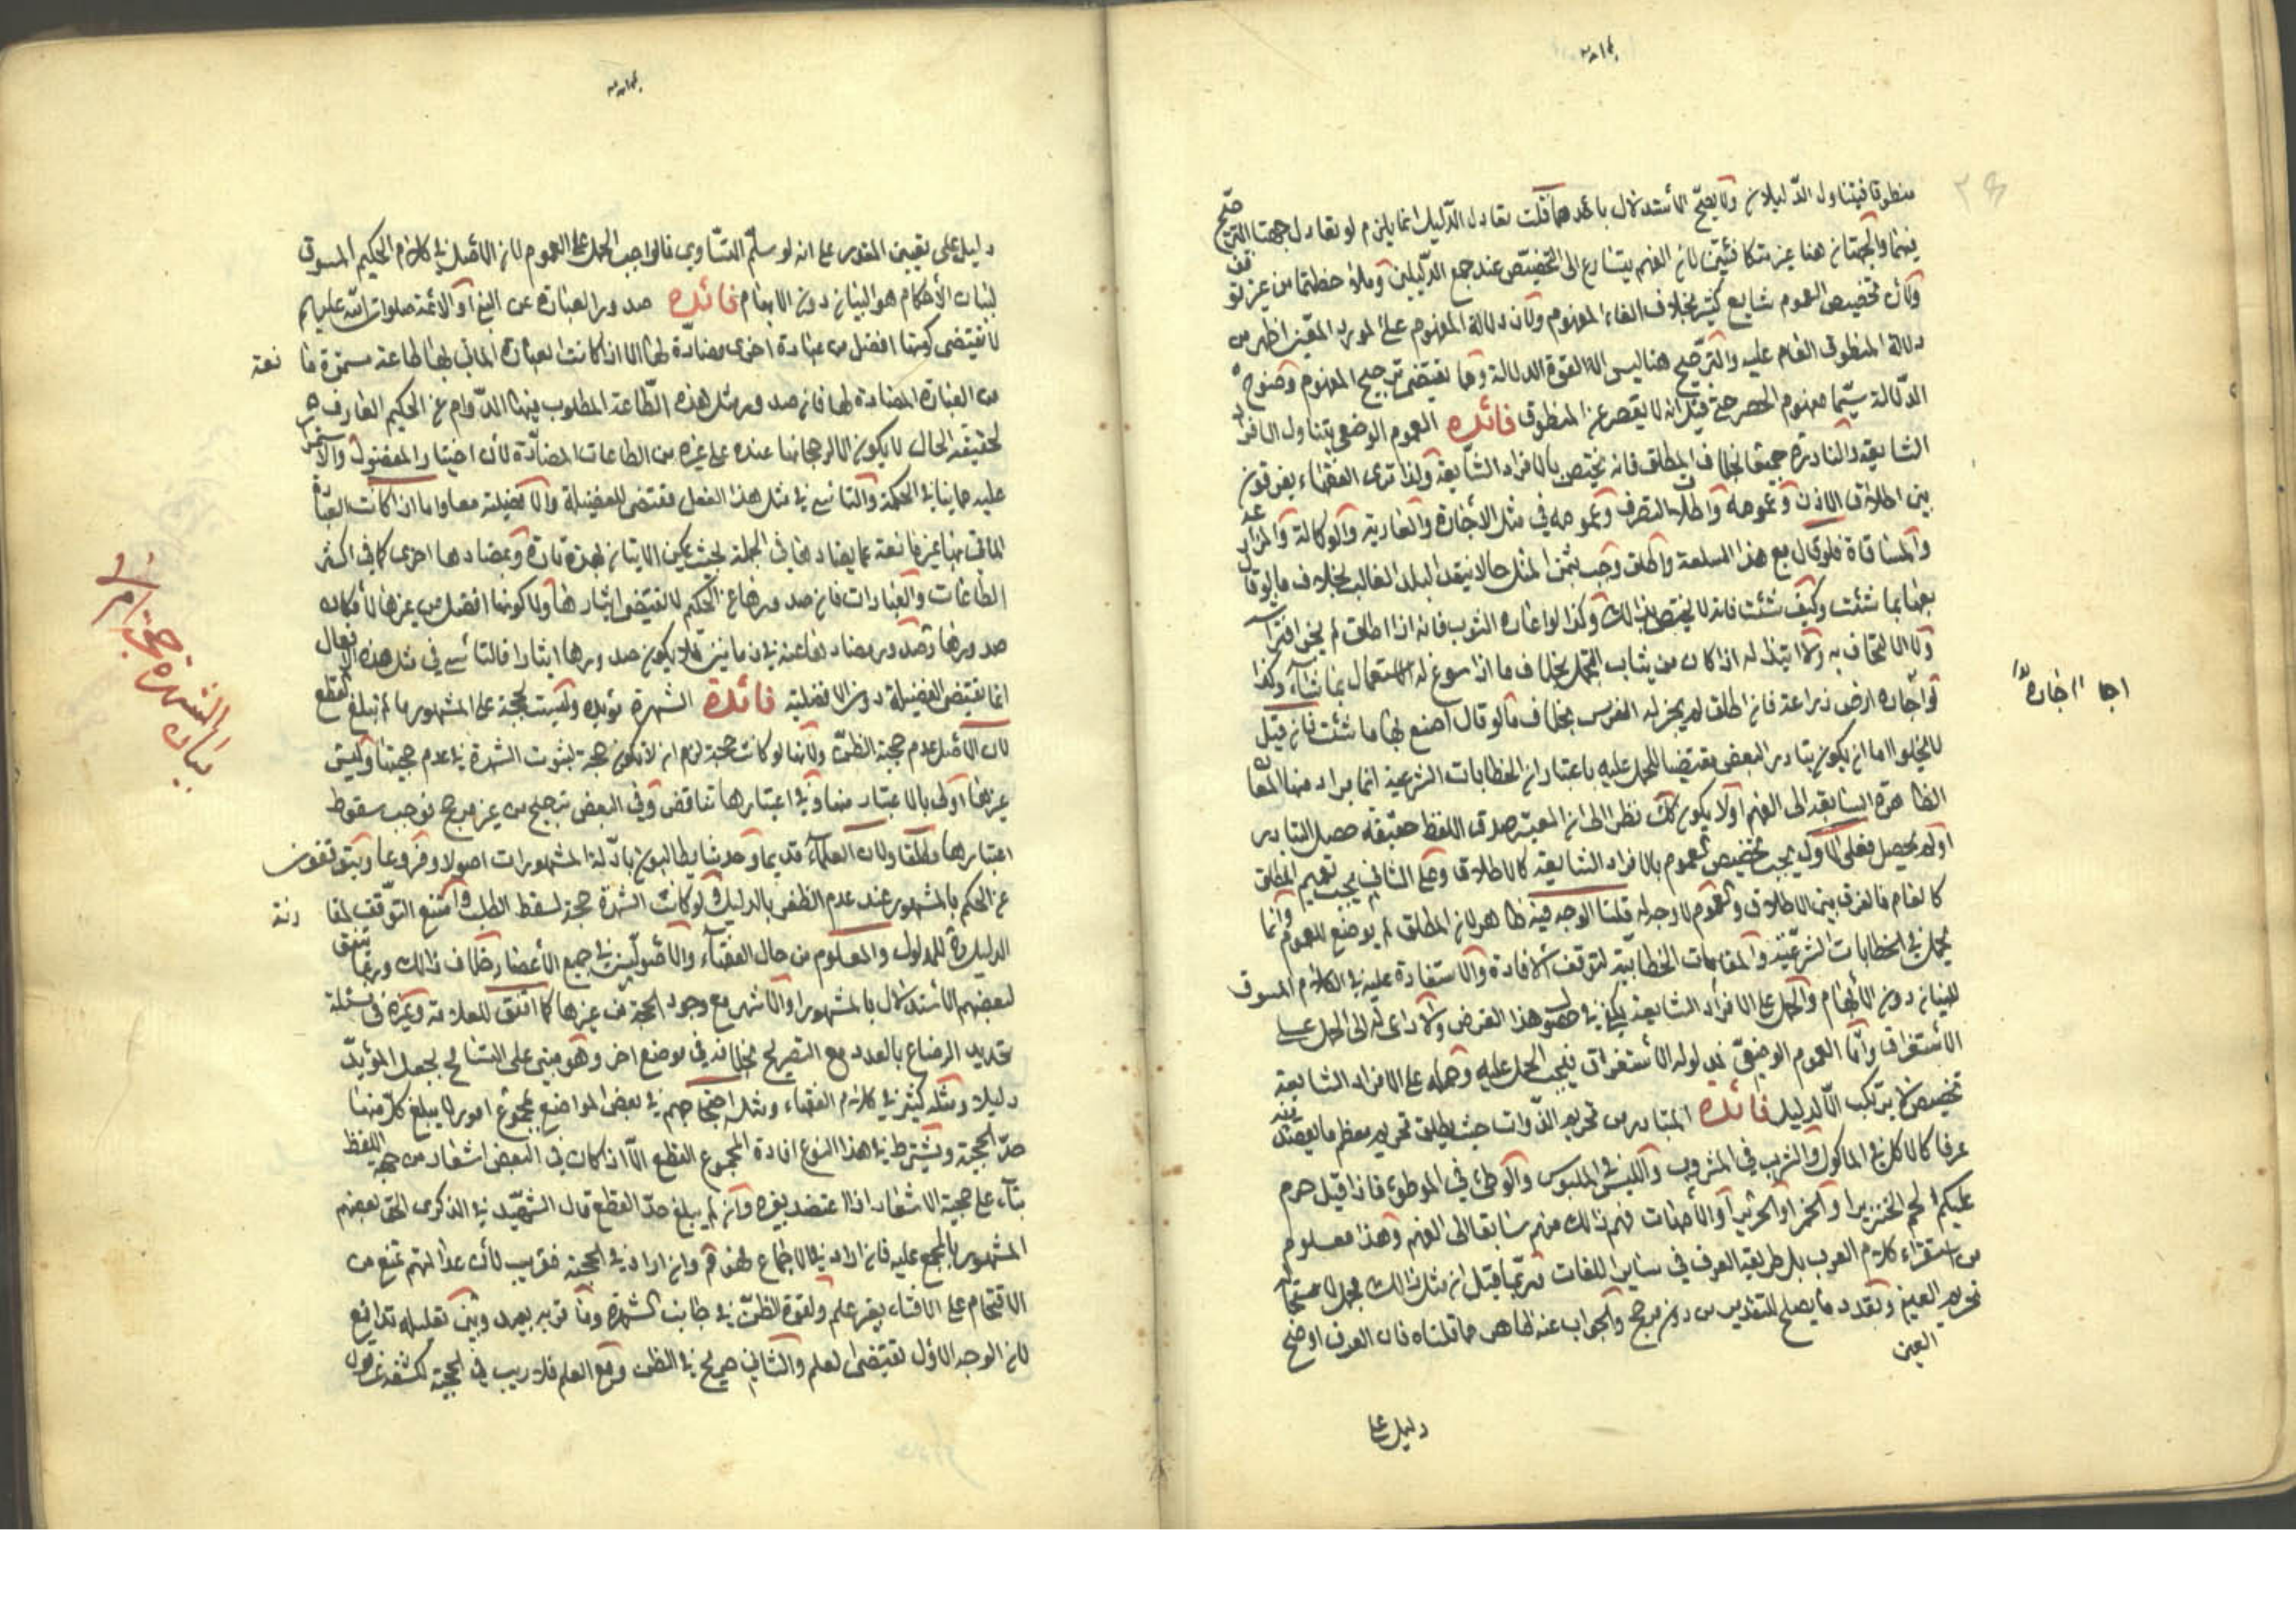 منطوقا فيتناول الدّليلان ولا يصحّ الأستدلال باحدهما قلت تعادل الدّليلين انما يلزم لو تعادل جهتا الترجيح
فيهما والجهتان هنا غير متكافئتين لان الفهم يتسارع الى التخصيص عند جمع الدّليلين وملاحظتهما من غير توقف
ولأن تخصيص العموم شايع كثير بخلاف الغاء المفهوم ولأن دلالة المفهوم على المورد المعين اظهر من
دلالة المنطوق العام عليه والترجيح هنا ليس الا لقوة الدلالة وهما يقتضى ترجيح المفهوم وضوح
الدّلالة سيّما مفهوم الحصر حتى قيل انه لا يقصر عن المنطوق فائده العموم الوضعى يتناول الافراد
الشايعة والنادرة جميعا بخلاف المطلق فانه يختص بالافراد الشايعة ولذا ترى الفقهاء يفرقون
بين اطلاق الاذن وعمومه واطلاق التصرف وعمومه في مثل الأجارة والعارية والوكالة والمزارعة
والمساقاة فلو قال بع هذا السلعة واطلق وجب بثمن المثل حالا بنقد البلد الغالب بخلاف ما لو قال
بعها بما شئت وكيف شئت فانه لا يختص بذلك وكذا لو اعاره الثوب فانه اذا اطلق لم يجز افتراشه
ولا الالتحاف به ولا ابتذاله اذا كان من ثياب التجمل بخلاف ما اذا سوغ له الاستعمال بما شاء وكذا
لو اجاره ارض زراعة فان اطلق لم يجز له الغرس بخلاف ما لو قال اصنع بها ما شئت فان قيل
لا يخلوا اما ان يكون تبادر البعض مقتضيا للحمل عليه باعتبار ان الخطابات الشرعية انما يراد منها المعانى
الظاهرة السابقة الى الفهم اولا يكون كك نظرا الى ان المعتبر صدق اللفظ حقيقة حصل التبادر
او لم يحصل فعلى الاول يجب تخصيص العموم بالافراد الشايعة كالاطلاق وعلى الثانى يجب تعميم المطلق
كالعام فالفرق بين الاطلاق والعموم لا وجه له قلنا الوجه فيه ظاهر لان المطلق لم يوضع للعموم وانما
يحمل في الخطابات الشرعية والمقامات الخطابية لتوقف الافادة والاستفادة عليه في الكلام المسوق
للبيان دون الأبهام والحمل على الافراد الشايعة يكفى في حصول هذا الغرض ولا داعى له الى الحمل على
الأستغراق وأمّا العموم الوضعىّ فمدلوله الأستغراق فيجب الحمل عليه وحمله على الافراد الشايعة
تخصيص لا يرتكب الّا لدليل فائده المتبادر من تحريم الذّوات حيث يطلق تحريم معظم ما يقصد منه
عرفا كالاكل في الماكول والشرب في المشروب واللبس في الملبوس والوطئ في الموطؤ فاذا قيل حرم
عليكم لحم الخنزير او الخمر او الحرير او الأمهات فهم ذالك منهم سابقا الى الفهم وهذا معلوم
من استقراء كلام العرب بل طريقة العرف في سايرا للغات فربما قيل ان مثل ذالك مجمل لاستحالة
تحريم العين وتعدد ما يصلح للتقدير من دون مرجح والجواب عنه ظاهر مما قلناه فان العرف اوضح
العين
دليل على
اجا
دليل على تعيين المقدر على انه لو سلّم التساوى فالواجب الحمل على العموم لان الأصل في كلام الحكيم المسوق
لبيان الأحكام هو البيان دون الابهام فائده صدور العبادة عن النبى او الائمة صلوات الله عليهم
لا يقتضى كونها افضل من عبادة اخرى مضادّة لها الا اذا كانت العبادة الماتى بها طاعة مستمرة مانعة
من العبادة المضادة لها فان صدور مثل هذه الطّاعة المطلوب فيها الدّوام عن الحكيم العارف
بحقيقة الحال لا يكون الا لرجحانها عنده على غيره من الطاعات المضادّة لأن اختيار المفضول والاستمرار
عليه مما ينافى الحكمة والتاسى في مثل هذا الفعل مقتضى للفضيلة والافضيلة معا واما اذا كانت العبادة
الماتى بها غير مانعة عما يضادها في الجملة بحيث يمكن الاتيان بهذه تارة وبمضادها اخرى كما في اكثر
الطاعات والعبادات فان صدورها عن الحكيم لا يقتضى ايثارها ولا كونها افضل من غيرها لأمكان
صدورها وصدور مضادها عنه في زمانين فلا يكون صدورها ايثارا فالتاسى في مثل هذه الافعال
انما يقتضى الفضيلة دون الافضلية فائدة الشهرة مؤيده وليست بحجة على المشهور ما لم تبلغ القطع
لان الأصل عدم حجية الظنّ ولأنها لو كانت حجة لزم ان لا تكون حجة لثبوت الشهرة في عدم حجيتها وليس
غيرها اولى بالاعتبار منها وفي اعتبارها تناقض وفي البعض ترجيح من غير مرجح فوجب سقوط
اعتبارها مطلقا ولان العلماء قديما وحديثا يطالبون بادّلة المشهورات اصولا وفروعا ويتوقفون
عن الحكم بالمشهور عند عدم الظفر بالدليل ولو كانت الشهرة حجة لسقط الطلب وامتنع التوقف لمقارنة
الدليل للمدلول والمعلوم من حال الفقهاء والأصوليين في جميع الأعصار خلاف ذالك وربما يتفق
لبعضهم الأستدلال بالمشهور او الأشهر مع وجود الحجة من غيرها كما اتفق للعلامة وغيره في مسئلة
تحديد الرضاع بالعدد مع التصريح بخلافه في موضع اخر وهو مبنى على التسامح بجعل المؤيّد
دليلا ومثله كثير في كلام الفقهاء ومثله احتجاجهم في بعض المواضع بمجموع امور لا يبلغ كل منها
حدّ الحجية ويشترط في هذا النوع افادة المجموع القطع الّا اذا كان في البعض اشعار من جهة اللفظ
بناء على حجية الاشعار اذا اعتضد بغيره وان لم يبلغ حدّ القطع قال الشّهيد في الذكرى الحق بعضهم
المشهور بالمجمع عليه فان اراد في الاجماع فهو ممنوع وان اراد في الحجية فقريب لأن عدالتهم تمنع من
الاقتحام على الافتاء بغير علم ولقوة الظنّ في جانب الشهرة وما قربه بعيد وبين تعليليه تدافع
لان الوجه الاول يقتضى العلم والثانى صريح في الظن ومع العلم فلا ريب في الحجية لكشفه عن قول
بيان الشهرة حجة ام لا